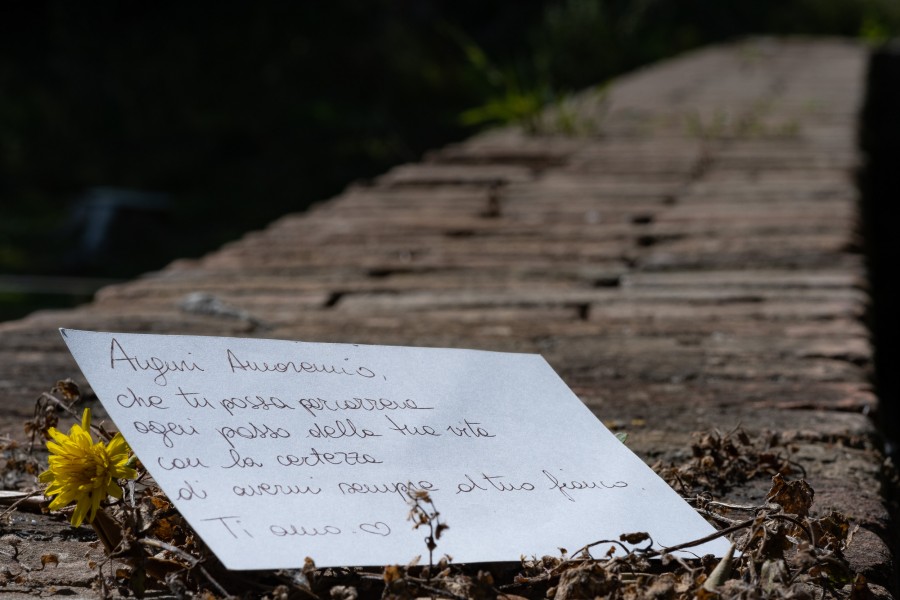 Auguri Amoremio,
che tu possa percorrere
ogni passo della tua vita
con la certezza
di avermi sempre al tuo fianco.
Ti amo. ♡